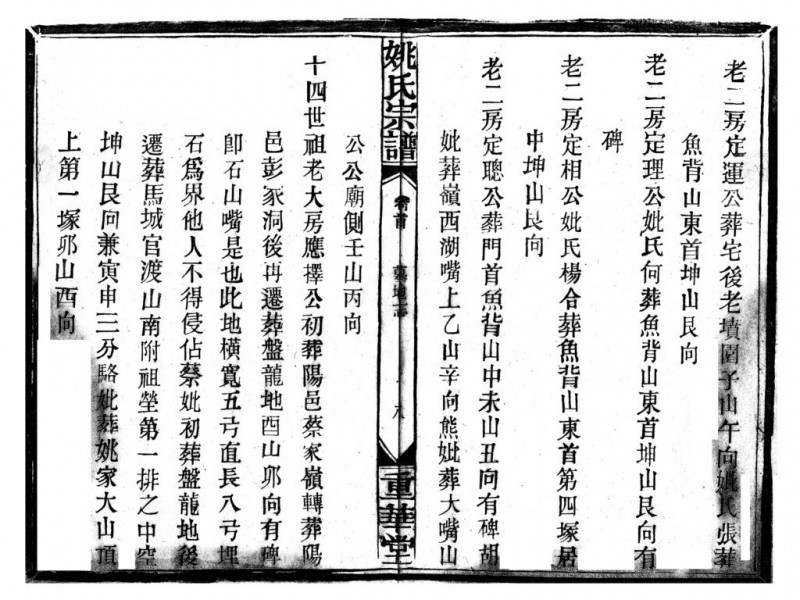 老二房定運公葬宅後老墳園子山午向妣氏張葬
魚背山東首坤山艮向
老二房定理公妣氏何葬魚背山東首坤山艮向有
碑
老二房定相公妣氏楊合葬魚背山東首第四塚居
中坤山艮向
老二房定聰公葬門首魚背山中未山丑向有碑胡
妣葬嶺西湖嘴上乙山辛向熊妣葬大嘴山
姚氏宗譜
卷首
墓地志
重華堂
公公廟側壬山丙向
十四世祖老大房應擇公初葬陽邑蔡家嶺轉葬陽
邑彭家洞後再遷葬盤龍地酉山卯向有碑
卽石山嘴是也此地橫寬五弓直長八弓埋
石爲界他人不得侵佔蔡妣初葬盤龍地後
遷葬馬城官渡山南附祖塋第一排之中空
坤山艮向兼寅申三分駱妣葬姚家大山頂
上第一塚卯山酉向